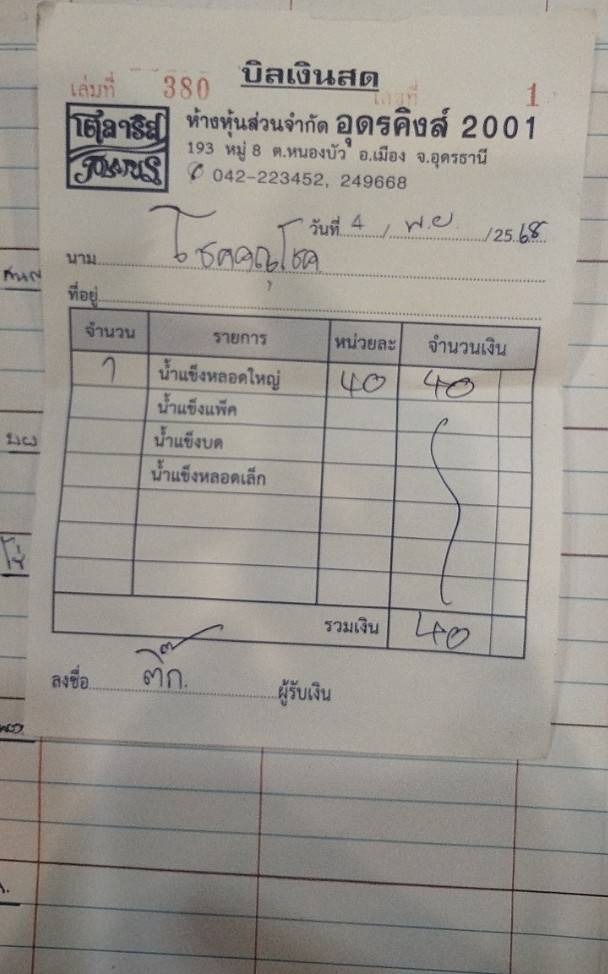 บิลเงินสด
เล่มที่ 380 เลขที่ 1
ห้างหุ้นส่วนจำกัด อุดรคิงส์ 2001
193 หมู่ 8 ต.หนองบัว อ.เมือง จ.อุดรธานี
042-223452, 249668
วันที่ 4 / พ.ย / 2568
นาม โชคคุณโชค
ที่อยู่
จำนวน รายการ หน่วยละ จำนวนเงิน
1 น้ำแข็งหลอดใหญ่ 40 40
น้ำแข็งแพ็ค
น้ำแข็งบด
น้ำแข็งหลอดเล็ก
รวมเงิน 40
ลงชื่อ ติ๊ก. ผู้รับเงิน